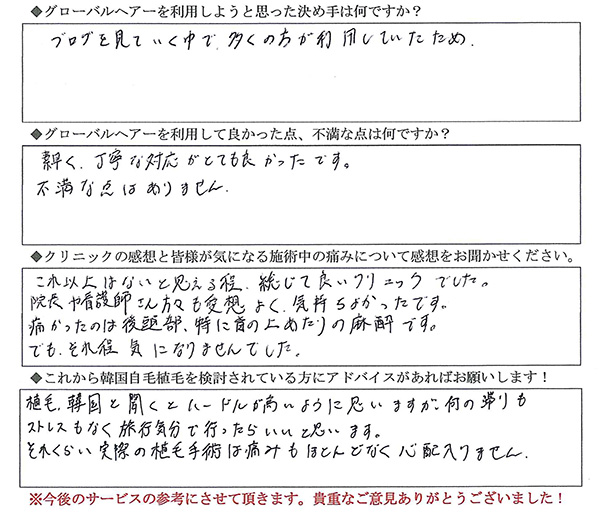 ◆グローバルヘアーを利用しようと思った決め手は何ですか？
ブログを見ていく中で、多くの方が利用していたため.
◆グローバルヘアーを利用して良かった点、不満な点は何ですか？
素早く、丁寧な対応がとても良かったです。
不満な点はありません.
◆クリニックの感想と皆様が気になる施術中の痛みについて感想をお聞かせください。
これ以上はないと思える程、総じて良いクリニックでした。
院長や看護師さん方々も愛想よく、気持ちよかったです。
痛かったのは後頭部、特に首の上あたりの麻酔です。
でも、それ程気になりませんでした.
◆これから韓国自毛植毛を検討されている方にアドバイスがあればお願いします！
植毛、韓国と聞くとハードルが高いように思いますが、何の滞りも
ストレスもなく旅行気分で行ったらいいと思います。
それくらい実際の植毛手術は痛みもほとんどなく心配入りません.
※今後のサービスの参考にさせて頂きます。貴重なご意見ありがとうございました！